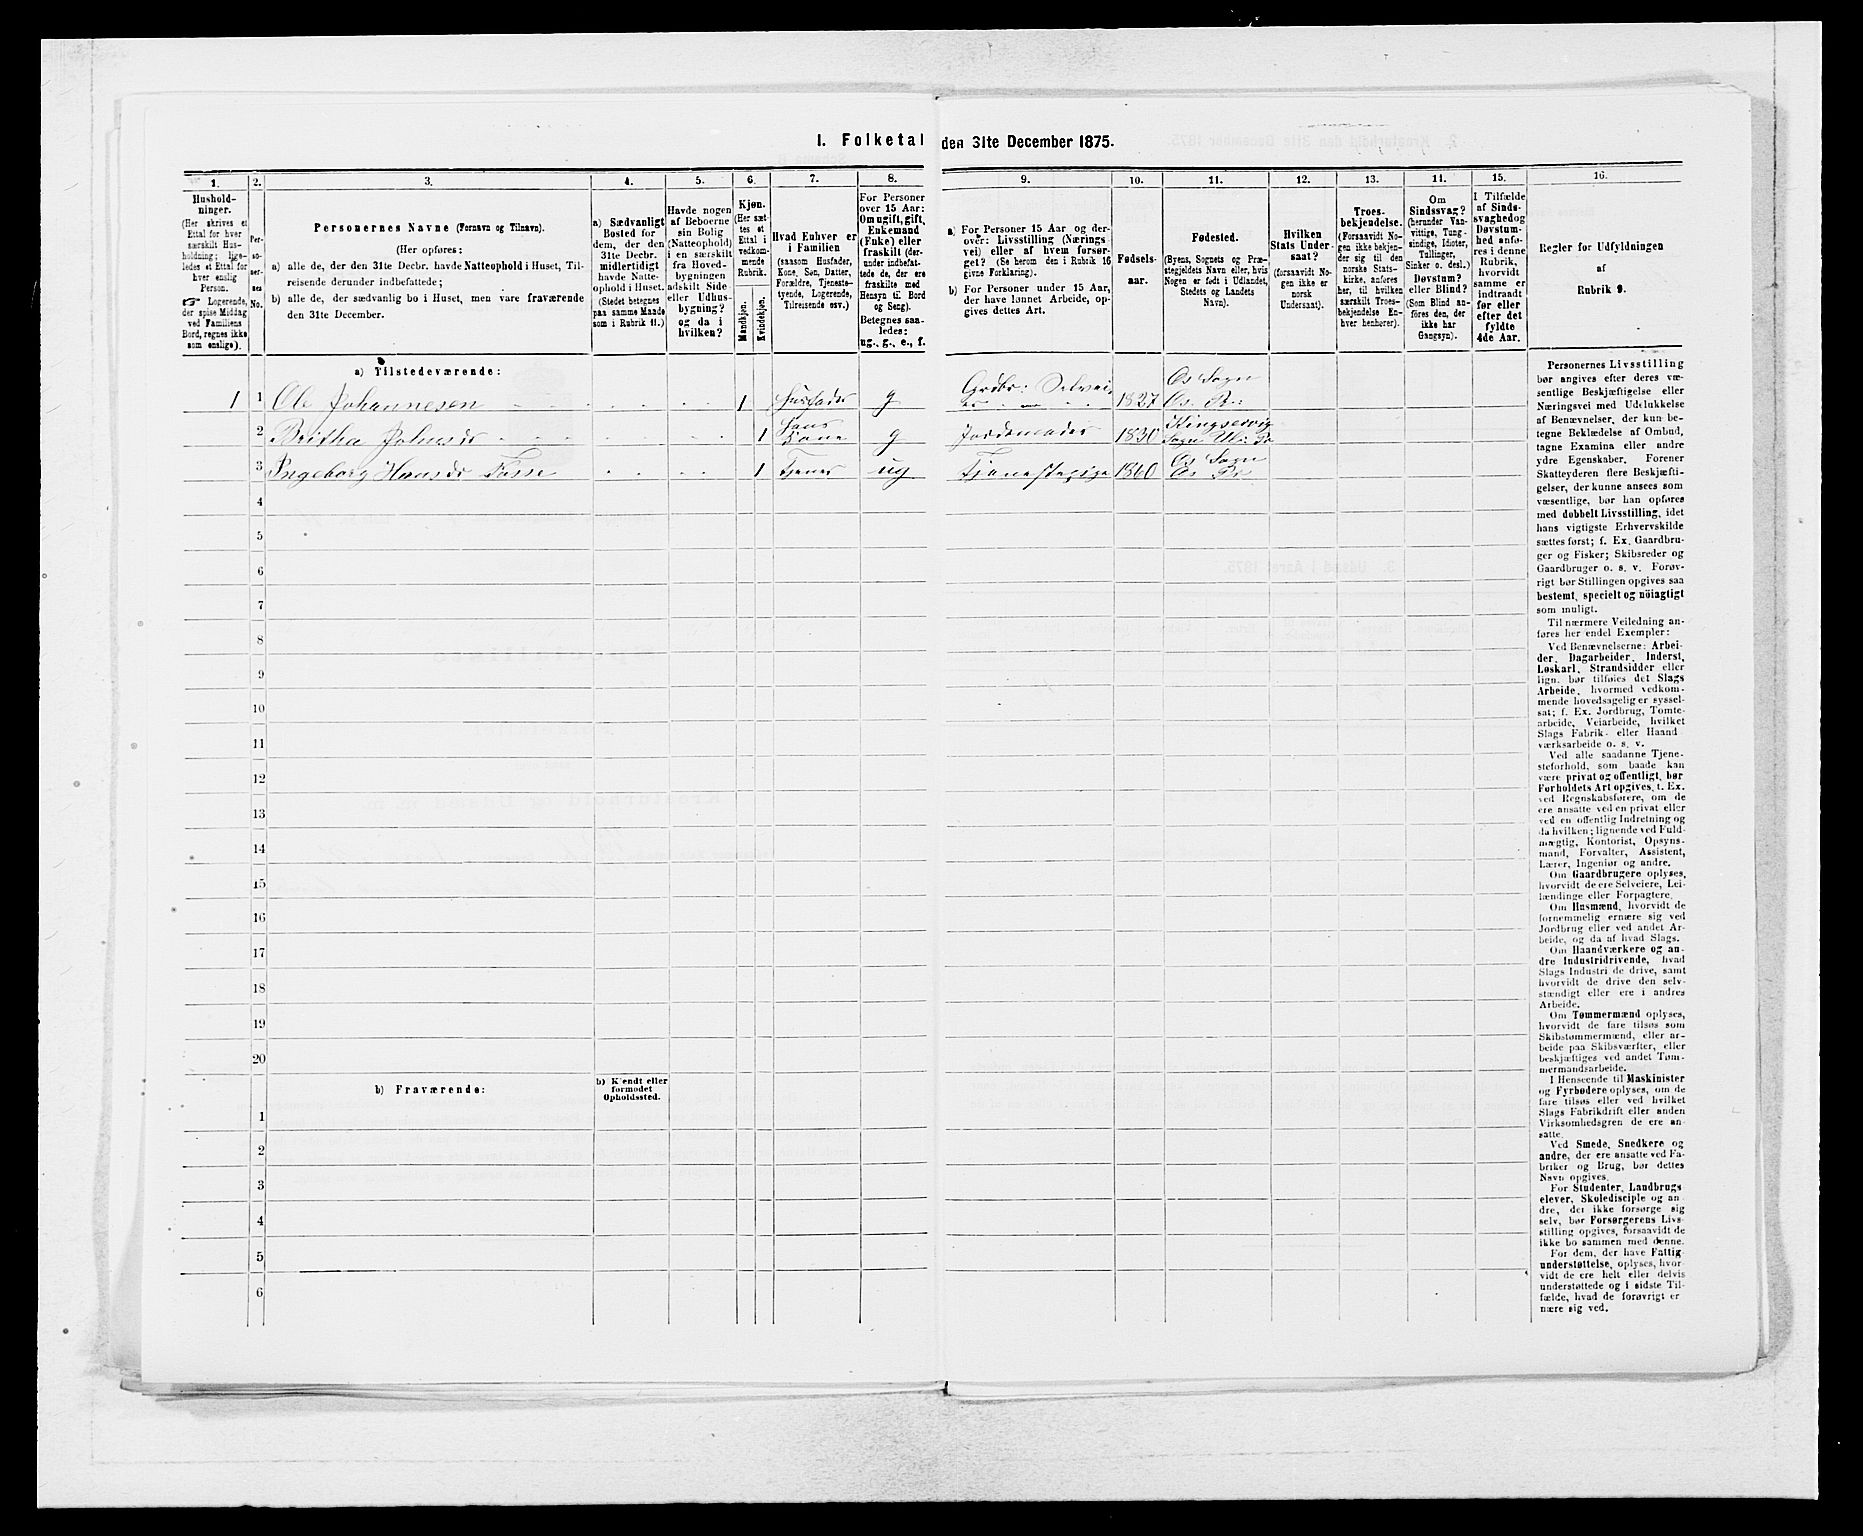 I. Folketal den 31te December 1875.
1.
2.
3.
4.
5.
6.
7.
8.
9.
10.
11.
12.
13.
14.
15.
16.
Hushold-
ninger.
(Her skrives et
Ettal for hver
særskilt Hus-
holdning; lige-
ledes et Ettal for
hver enslig
Person.
☞ Logerende,
der spise Middag
ved Familiens
Bord, regnes ikke
som enslige).
Per-
so-
ner-
nes
No.
Personernes Navne (Fornavn og Tilnavn).
(Her opføres:
a) alle de, der den 31te Decbr. havde Natteophold i Huset, Til-
reisende derunder indbefattede;
b) alle de, der sædvanlig bo i Huset, men vare fraværende
den 31te December.
a) Sædvanligt
Bosted for
dem, der den
31te Decbr.
midlertidigt
havde Natte-
ophold i Huset.
(Stedet betegnes
paa samme Maade
som i Rubrik 11.)
Havde nogen
af Beboerne
sin Bolig
(Natteophold)
i en særskilt
fra Hoved-
bygningen
adskilt Side
eller Udhus-
bygning?
og da i
hvilken?
Kjøn.
(Her sæt-
tes et
Ettal i
vedkom-
mende
Rubrik.
Mandkjøn.
Kvindekjøn.
Hvad Enhver er
i Familien
(saasom Husfader,
Kone, Søn, Datter,
Forældre, Tjeneste-
tyende, Logerende,
Tilreisende osv.)
For Personer
over 15 Aar:
Om ugift, gift,
Enkemand
(Enke) eller
fraskilt (der-
under indbefat-
tede de, der ere
fraskilte med
Hensyn til Bord
og Seng).
Betegnes saa-
ledes:
ug., g., e., f.
a) For Personer 15 Aar og der-
over: Livsstilling (Nærings
vei) eller af hvem forsør-
get? (Se herom den i Rubrik 16
givne Forklaring).
b) For Personer under 15 Aar,
der have lønnet Arbeide, op-
gives dettes Art.
Fødsels-
aar.
Fødested.
(Byens, Sognets og Præ-
stegjeldets Navn eller, hvis
Nogen er født i Udlandet,
Stedets og Landets
Navn).
Hvilken
Stats Under-
saat?
(forsaavidt No-
gen ikke er
norsk
Undersaat).
Troes-
bekjendelse.
(Forsaavidt No-
gen ikke bekjen-
der sig til den
norske Stats-
kirke, anføres
her, til hvilken
særskilt Troes-
bekjendelse En-
hver henhører).
Om
Sindssvag?
(herunder Van-
vittige, Tung-
sindige, Idioter,
Tullinger,
Sinker o. desl.)
Døvstum?
eller Blind?
(Som Blind an-
føres den, der
ikke har
Gangsyn).
I Tilfælde
af Sinds-
svaghed og
Døvstum-
hed anfø-
res i denne
Rubrik,
hvorvidt
samme er
indtraadt
før eller
efter det
fyldte
4de Aar.
Regler for Udfyldningen
af
Rubrik 9.
a) Tilstedeværende:
1 1 Ole Johannesen 1 Husfader g Grdbr: Selveier 1827 Os Sogn Os Pr:
2 Britha Johnsdr 1 hans Kone g Jordemoder 1830 Kingservig Sogn
3 Ingeborg Hansdr 1 Tjener ug 1860 Os Sogn Os Pr
4
5
6
7
8
9
10
11
12
13
14
15
16
17
18
19
20
b) Fraværende:
b) Kjendt eller
formodet
Opholdssted.
1
2
3
4
5
6
Personernes Livsstilling
bør angives efter deres væ-
sentlige Beskjæftigelse eller
Næringsvei med Udelukkelse
af Benævnelser, der kun be-
tegne Beklædelse af Ombud,
tagne Examina eller andre
ydre Egenskaber. Forener
Skatteyderen flere Beskjæfti-
gelser, der kunne ansees som
væsentlige, bør han opføres
med dobbelt Livsstilling, idet
hans vigtigste Erhvervskilde
sættes først; f. Ex. Gaardbru-
ger og Fisker; Skibsreder og
Gaardbruger o. s. v. Forøv-
rigt bør Stillingen opgives saa
bestemt, specielt og nöiagtigt
som muligt.
Til nærmere Veiledning an-
føres her endel Exempler:
Ved Benævnelserne: Arbei-
der, Dagarbeider, Inderst,
Løskarl, Strandsidder eller
lign. bør tilføies det Slags
Arbeide, hvormed vedkom-
mende hovedsagelig er syssel-
sat; f. Ex. Jordbrug, Tomte-
arbeide, Veiarbeide, hvilket
Slags Fabrik- eller Haand
værksarbeide o. s. v.
Ved alle saadanne Tjene-
steforhold, som baade kan
være privat og offentligt, bør
Forholdets Art opgives, f. Ex.
ved Regnskabsførere, om de
ere ansatte ved en privat eller
ved en offentlig Indretning og
da hvilken; lignende ved Fuld-
mægtig, Kontorist, Opsyns-
mand, Forvalter, Assistent,
Lærer, Ingeniør og andre.
Om Gaardbrugere oplyses,
hvorvidt de ere Selveiere, Lei-
lændinge eller Forpagtere.
Om Husmænd, hvorvidt de
fornemmelig ernære sig ved
Jordbrug eller ved andet Ar-
beide, og da af hvad Slags.
Om Haandværkere og an-
dre Industridrivende, hvad
Slags Industri de drive, samt
hvorvidt de drive den selv-
stændigt eller ere i andres
Arbeide.
Om Tømmermænd oplyses,
hvorvidt de fare tilsøs som
Skibstømmermænd, eller ar-
beide paa Skibsværfter, eller
beskjæftiges ved andet Tøm-
mermandsarbeide.
I Henseende til Maskinister
og Fyrbødere oplyses, om de
fare tilsøs eller ved hvilket
Slags Fabrikdrift eller anden
Virksomhedsgren de ere an-
satte.
Ved Smede, Snedkere og
andre, der ere ansatte ved Fa-
briker og Brug, bør dettes
Navn opgives.
For Studenter, Landbrugs
elever, Skoledisciple og an
dre, det ikke forsørge sig
selv, bør Forsørgerens Livs-
stilling opgives, forsaavidt de
ikke bo sammen med denne.
For dem, der have Fattig
understøttelse, oplyses, hvor-
vidt de ere helt eller delvis
understøttede og i sidste Til-
fælde, hvad de forøvrigt er
nære sig ved.